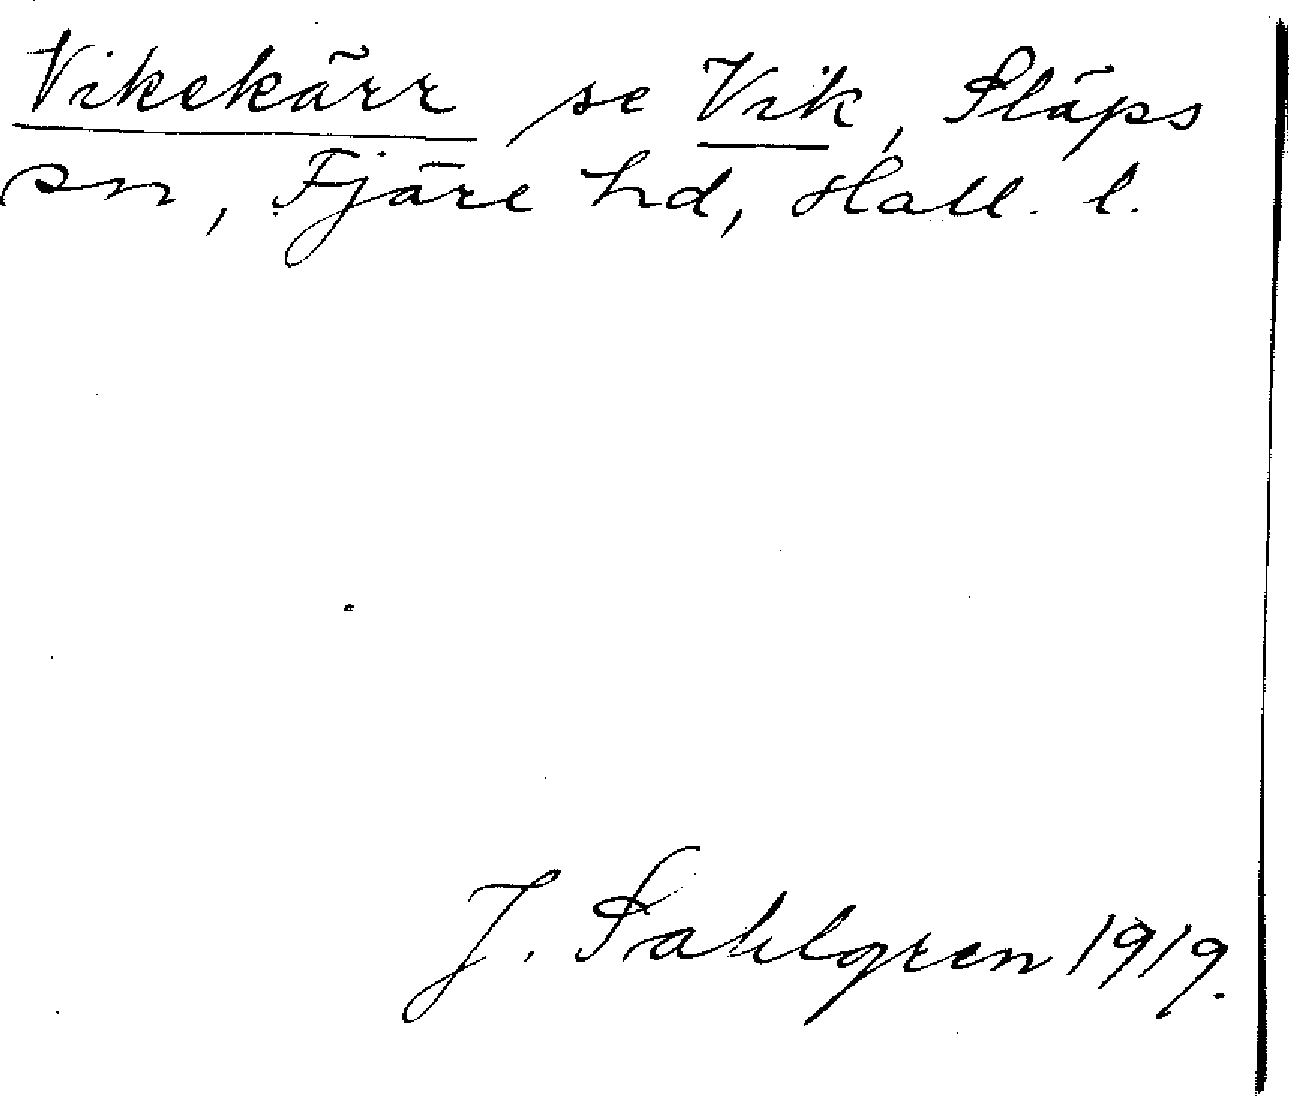 Vikekärr se Vik, Släps
sn, Fjäre hd, Hall. l.
J. Sahlgren 1919.